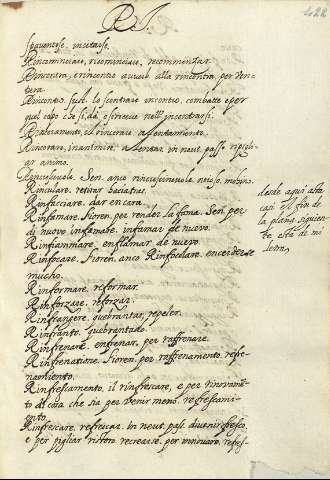 RI.
422
spaventose, incitarse.
Rincominciare, ricominciare, recomenzar.
Rincontra, e rincontro avverb. alla rincontra, per ven-
tura.
Rincontro, sust. lo scontrare incontro, combatte e per
quel colpo che si dà, o si riceve nell'incontrarsi.
Rincorare, inanimir, alentar, in neut. pass. ripigli-
ar animo.
Rinculare, retirar hacia tras.
Rinfacciare, dar en cara.
Rinfamare, Fioren. per render la fama, Sen. per
di nuovo infamare, infamar de nuevo.
Rinfiammare, enflamar de nuevo.
Rinfocare, Fioren. anco Rinfocolare, encenderse
mucho.
Rinformare, reformar.
Rinforzare, reforzar.
Rinfrangere, quebrantar, repeler.
Rinfranto, quebrantado.
Rinfrenare, enfrenar, per raffrenare.
Rinfrenatione, Fioren. per raffrenamento, refre-
namiento.
Rinfrescamento, il rinfrescare, e per rinovamen-
to di cosa che sia per venir meno, refrescami-
ento.
Rinfrescare, refrescar, in neut. pass. divenir fresco,
e per pigliar ristoro, recrearse, per rinnovare, refres-
desde aqui asta
casi el fin de
la plana siguien-
te esta de mi
letra,